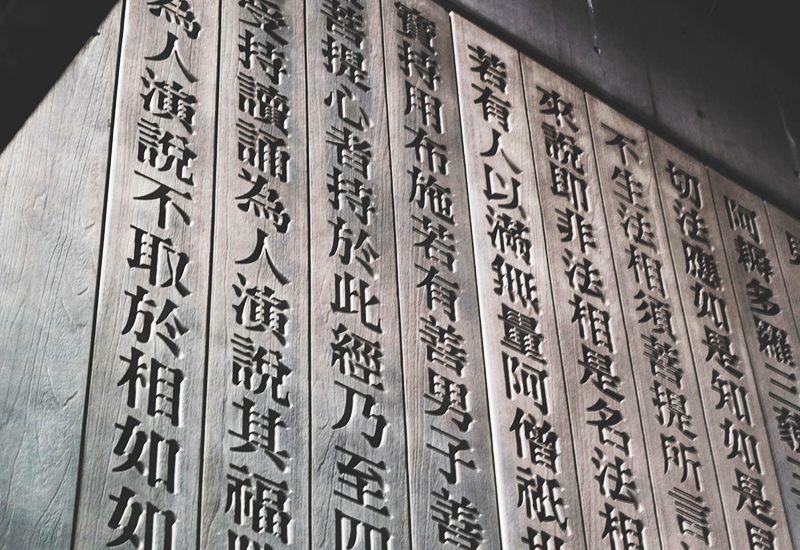 阿耨多羅三藐三
切法應如是知如是見
不生法相須菩提所言
來說即非法相是名法相
若有人以滿無量阿僧祇世
寶持用布施若有善男子善
菩提心者持於此經乃至四
受持讀誦為人演說其福勝
為人演說不取於相如如